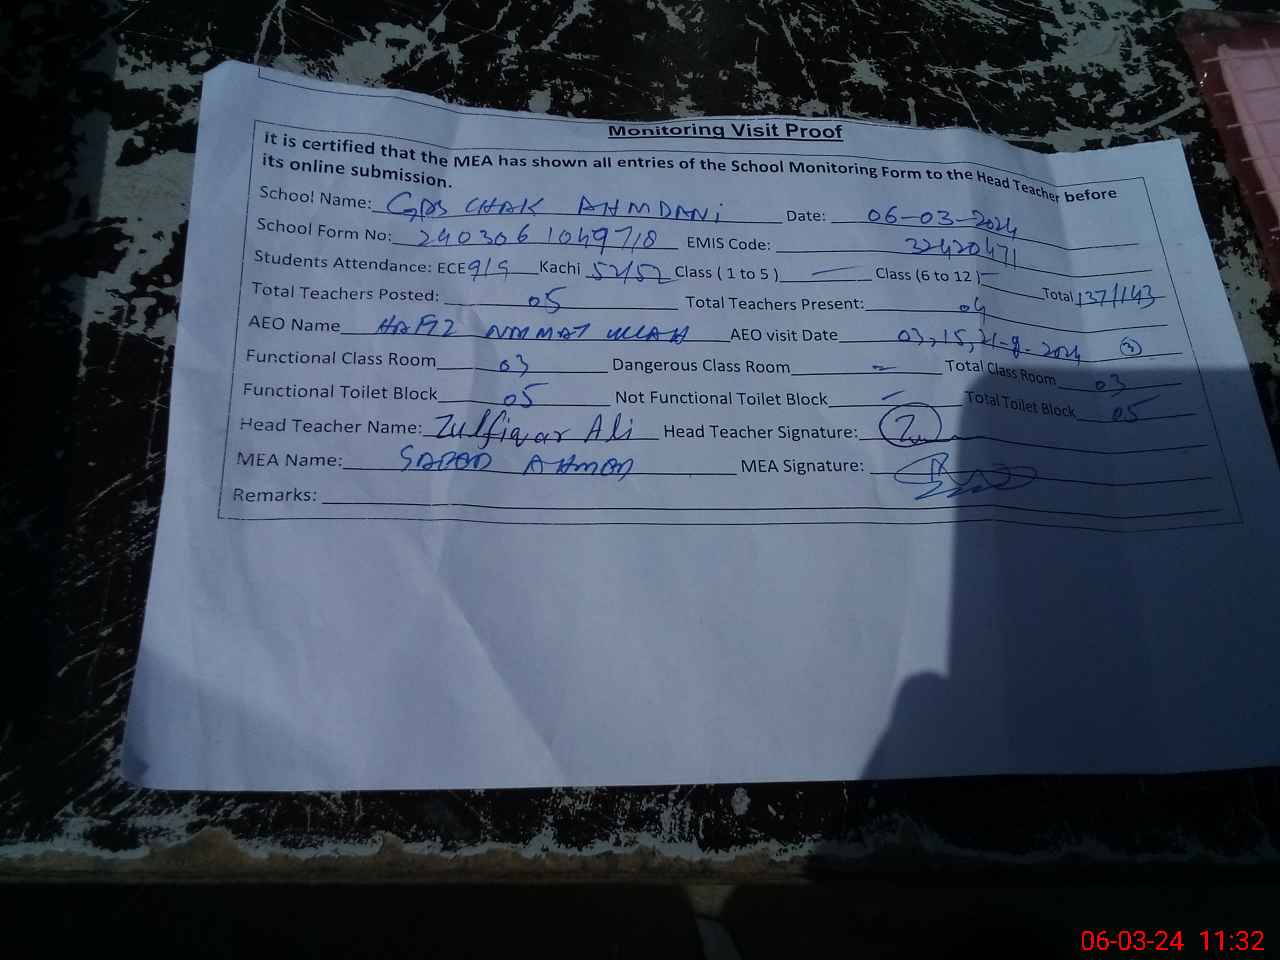 Monitoring Visit Proof
It is certified that the MEA has shown all entries of the School Monitoring Form to the Head Teacher before
its online submission.
School Name: GPS CHAK AHMDANi Date: 06-03-2024
School Form No: 2403061049718 EMIS Code: 32420471
Students Attendance: ECE 9/9 Kachi 52/52 Class ( 1 to 5 ) — Class (6 to 12 ) — Total 137/143
Total Teachers Posted: 05 Total Teachers Present: 04
AEO Name HAFIZ ULLAH AEO visit Date 03,15,21- -2024 (3)
Functional Class Room 03 Dangerous Class Room — Total Class Room 03
Functional Toilet Block 05 Not Functional Toilet Block — Total Toilet Block 05
Head Teacher Name: Zulfiqar Ali Head Teacher Signature:
MEA Name: AHMAD MEA Signature:
Remarks:
06-03-24 11:32